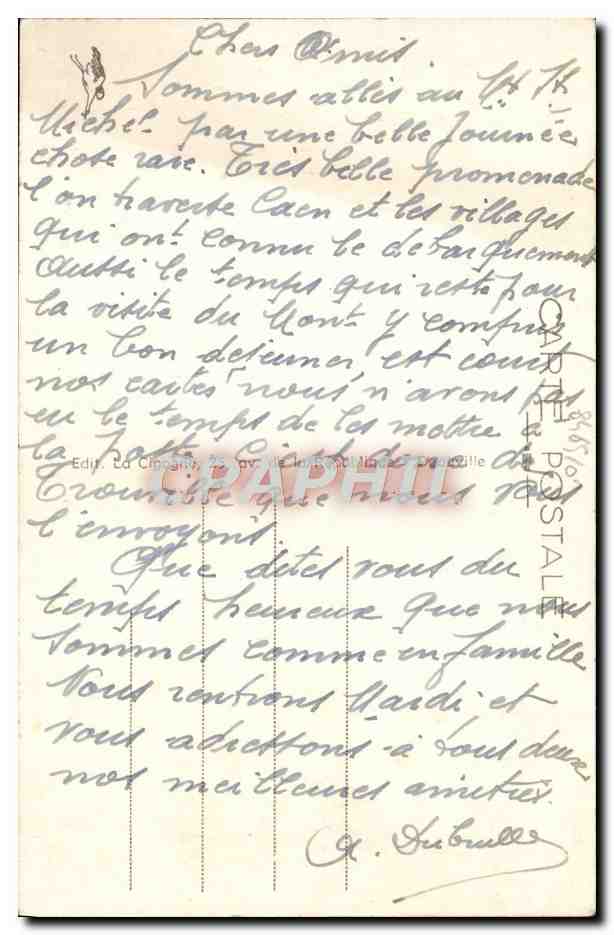 Chers Amis.
Sommes allés au Mt St
Michel par une belle journée
chose rare. Très belle promenade
l'on traverse Caen et les villages
qui ont connu le debarquement
Aussi le temps qui reste pour
la visite du Mont y compris
un bon dejeuner est court
nos cartes nous n'avons pas
eu le temps de les mettre à
la Poste. C'est de
Trouville que nous vous
l'envoyons.
Que dites vous du
temps heureux que nous
sommes comme en famille
Nous rentrons Mardi et
vous adressons à tous deux
nos meilleures amitiés.
A.
Edit. La Cigogne, 23, av. de la République, Deauville
CARTE POSTALE
CPAPHIL